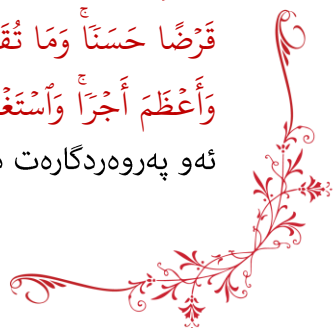 قَرۡضًا حَسَنَاۚ وَمَا
وَأَعۡظَمَ أَجۡرٗاۚ
ئەو پەروەردگارەت